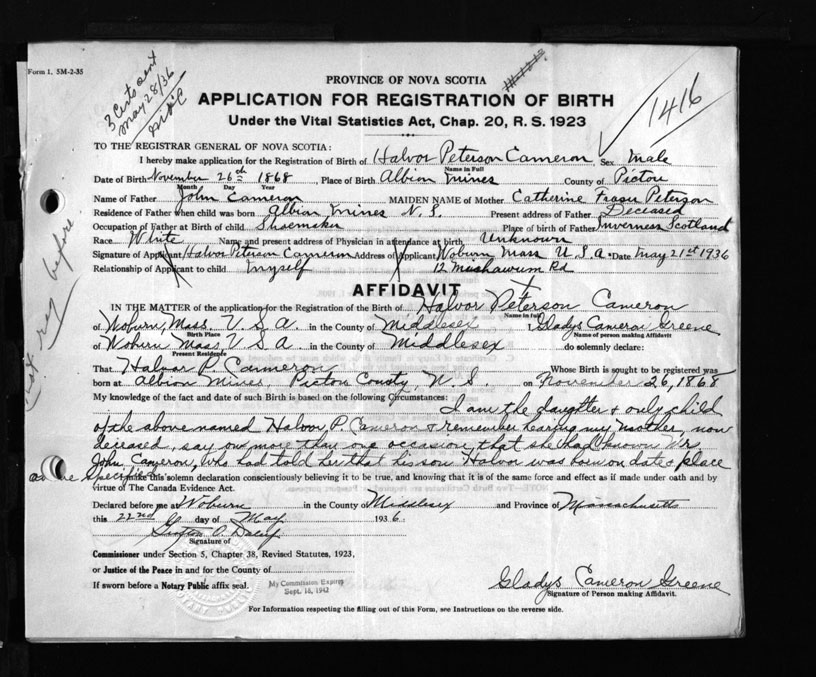 Form 1. 5M-2-35
3 Certs sent
May 28/36
1416
PROVINCE OF NOVA SCOTIA
APPLICATION FOR REGISTRATION OF BIRTH
Under the Vital Statistics Act, Chap. 20, R. S. 1923
TO THE REGISTRAR GENERAL OF NOVA SCOTIA:
I hereby make application for the Registration of Birth of Halvor Peterson Cameron, Sex Male
Name in Full
Date of Birth November 26th 1868, Place of Birth Albion Mines County of Pictou
Month Day Year
Name of Father John Cameron MAIDEN NAME of Mother Catherine Fraser Peterson
Residence of Father when child was born Albion Mines N. S. Present address of Father Deceased
Occupation of Father at Birth of child Shoemaker Place of birth of Father Inverness Scotland
Race White Name and present address of Physician in attendance at birth Unknown
Signature of Applicant Halvor Peterson Cameron Address of Applicant Woburn Mass U. S. A. Date May 21st 1936
Relationship of Applicant to child Myself 12 Mishawum Rd
not reg before
AFFIDAVIT
IN THE MATTER of the application for the Registration of the Birth of Halvor Peterson Cameron
Name in full
of Woburn, Mass. U. S. A. in the County of Middlesex I, Gladys Cameron Greene
Birth Place Name of person making Affidavit
of Woburn Mass U S A in the County of Middlesex do solemnly declare:
Present Residence
That Halvor P. Cameron Whose Birth is sought to be registered was
born at Albion Mines, Pictou County, N. S. on November 26, 1868
My knowledge of the fact and date of such Birth is based on the following Circumstances:
I am the daughter & only child
of the above named Halvor P. Cameron & remember hearing my mother, now
deceased, say on more than one occasion that she had known Mr
John Cameron, who had told her that his son Halvor was born on date & place
as specified.
make this solemn declaration conscientiously believing it to be true, and knowing that it is of the same force and effect as if made under oath and by
virtue of The Canada Evidence Act.
Declared before me at Woburn in the County of Middlesex and Province of Massachusetts
this 22nd day of May 1936.
Signature of
Commissioner under Section 5, Chapter 38, Revised Statutes, 1923,
or Justice of the Peace in and for the County of
If sworn before a Notary Public affix seal.
My Commission Expires
Sept. 18, 1942
Gladys Cameron Greene
Signature of Person making Affidavit.
For Information respecting the filling out of this Form, see Instructions on the reverse side.